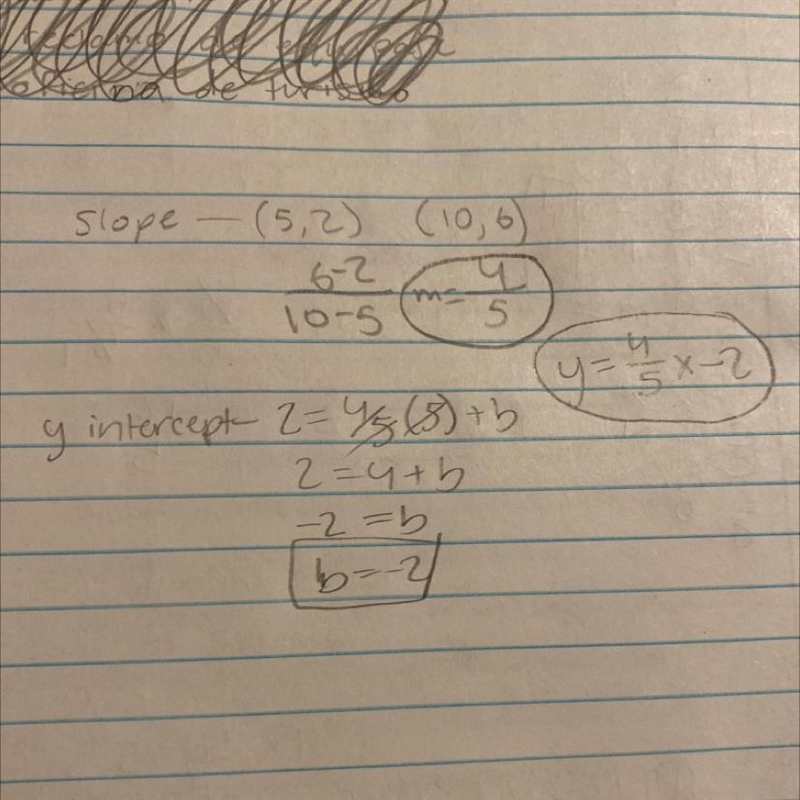 oficina de turismo
slope — (5,2) (10,6)
6-2
10-5
m= 4/5
y = 4/5 x - 2
y intercept- 2 = 4/5 (5) + b
2 = 4 + b
-2 = b
b = -2